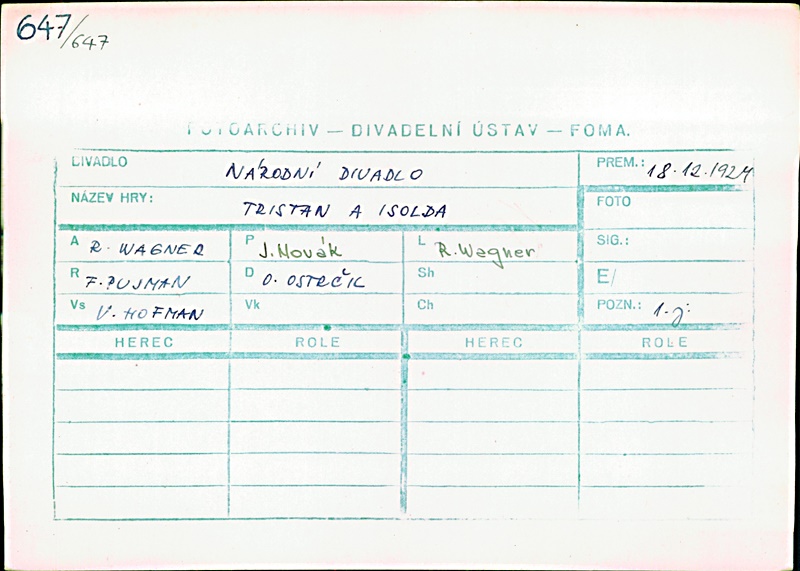 647/647
FOTOARCHIV — DIVADELNÍ ÚSTAV — FOMA.
DIVADLO NÁRODNÍ DIVADLO PREM.: 18.12.1924
NÁZEV HRY: TRISTAN A ISOLDA FOTO
A R. WAGNER P J. Novák L R. Wagner SIG.:
R F. PUJMAN D O. OSTRČIL Sh E/
Vs V. HOFMAN Vk Ch POZN.: 1.j.
HEREC ROLE HEREC ROLE